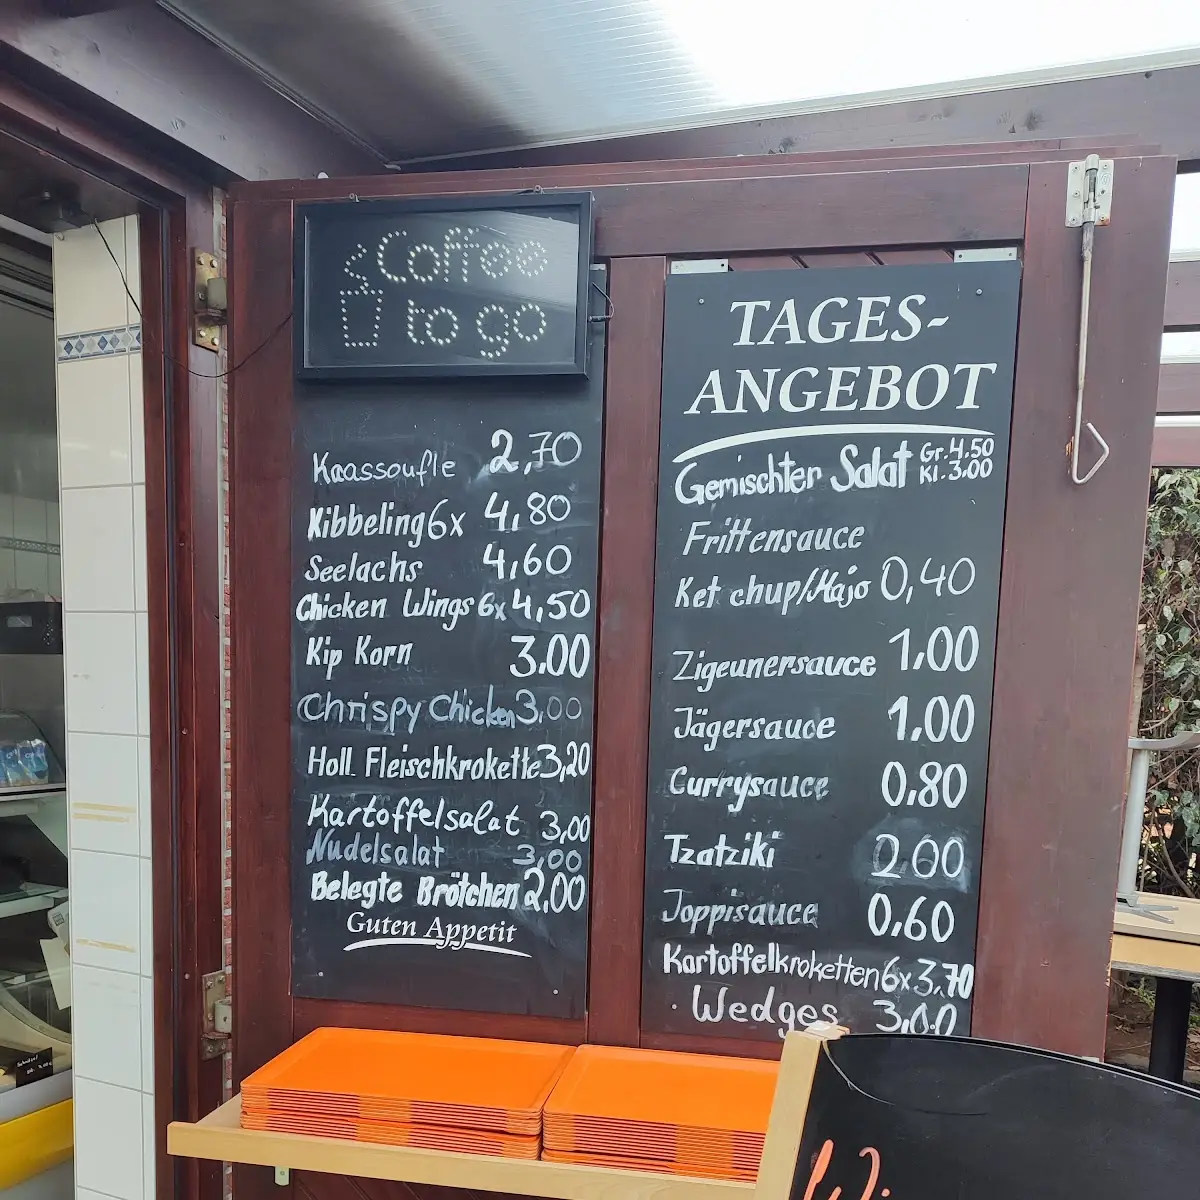 Coffee
to go
Kaassoufle 2,70
Kibbeling 6x 4,80
Seelachs 4,60
Chicken Wings 6x 4,50
Kip Korn 3.00
Chrispy Chicken 3.00
Holl. Fleischkrokette 3,20
Kartoffelsalat 3,00
Nudelsalat 3,00
Belegte Brötchen 2,00
Guten Appetit
TAGES-
ANGEBOT
Gemischter Salat Gr. 4.50
Kl. 3.00
Frittensauce
Ket chup/Majo 0,40
Zigeunersauce 1,00
Jägersauce 1.00
Currysauce 0.80
Tzatziki 2.00
Joppisauce 0,60
Kartoffelkroketten 6x 3,70
Wedges 3,00